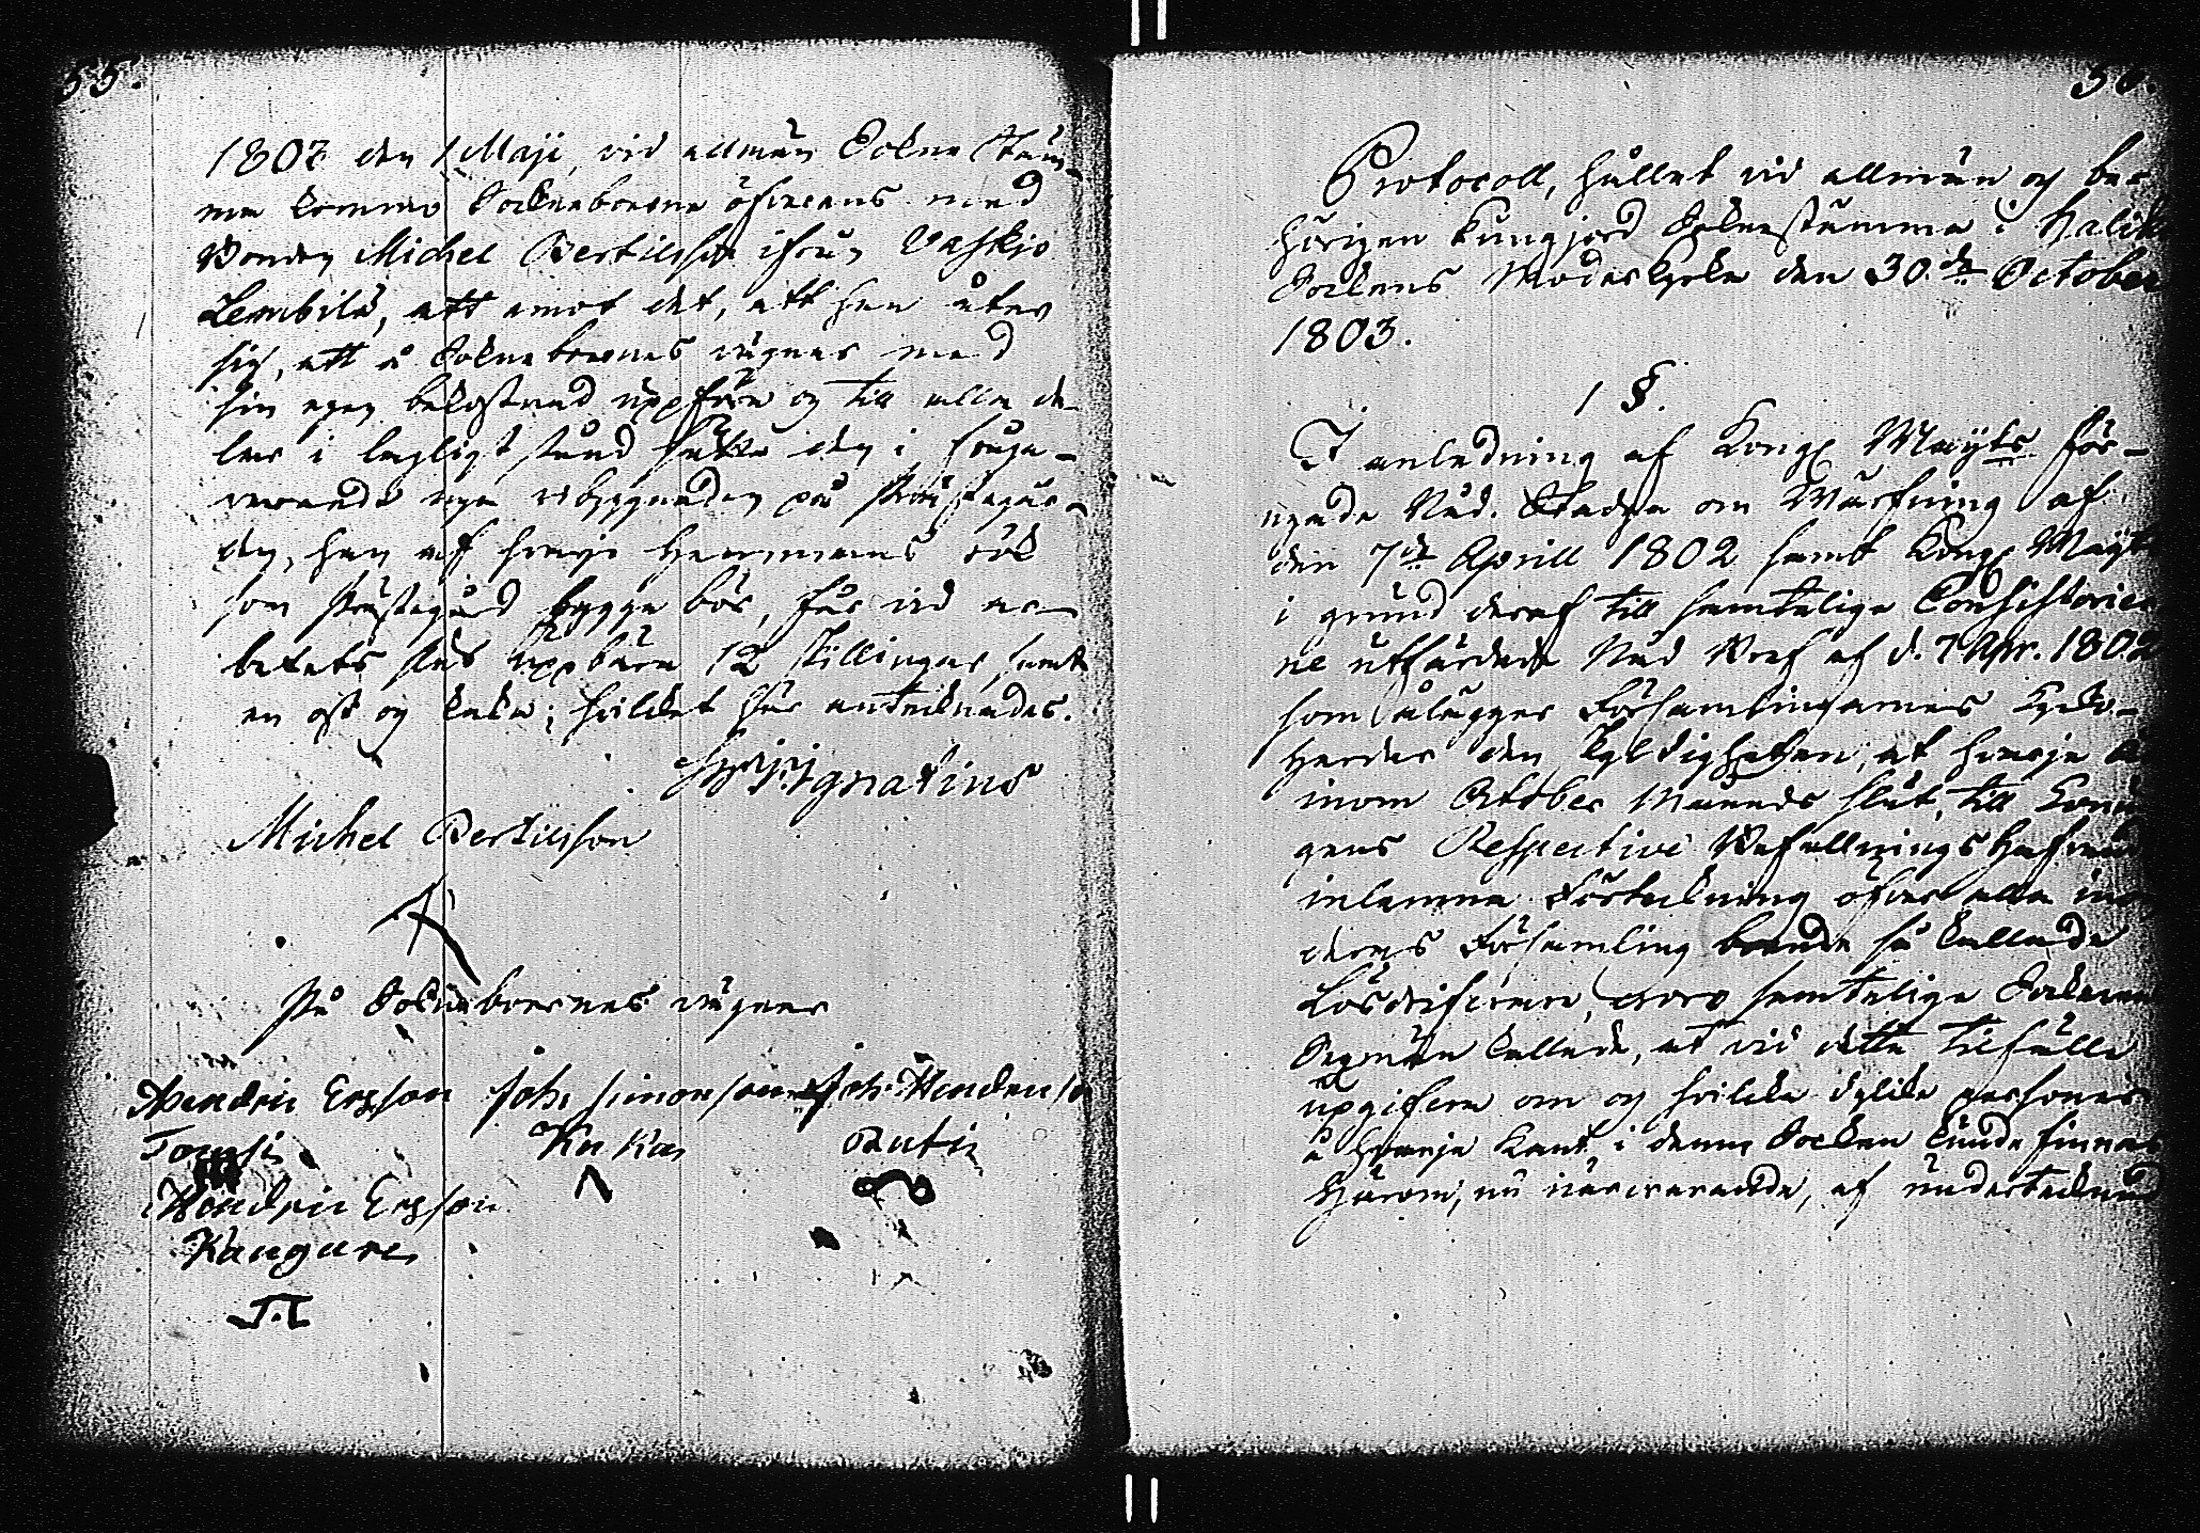 55.
1803 den 1 Maji, vid allmän Sokne Stäm-
ma kommo Sokneboerne öfverens med
Bonden Michel Bertilsson ifrån Vaskio
Lembilä, att emot det, att han åtar
sig, att å Soknebornes vägnar med
sin egen bekostnad uppföra og till alla de-
lar i lagligt stånd sätta den i fråga-
varande nya vibyggnaden på Prästegår-
den, han af hvarje Hemmans rök
som Prästegård bygga bör, får vid ar-
betets slut uppbära 12 skillingar, samt
en ost og kaka; hvilket här anteknades.
Ignatius
Michel Bertilsson
På Sokneboernes vägnar
Hendric Ersson Joh: Simonsson Joh: Hendricsso
Kukas Rutin
Hendric Ersson
Kangare
J.T
56.
Protocoll, hållet vid allmän og be-
hörigen kungjord Soknestämma i Haliko
Sockens Moderkyrka den 30.de October
1803.
1 §.
I anledning af Kongl Mayts för-
nyade Nåd. Stadga om Värfning af
den 7de Aprill 1802 samt Kongl Mayts
i grund deraf till samtelige Consistorier
ne utfärdade Nåd Bref af d. 7 Apr. 1802
som ålägger Församlingarnes Kyrko-
herdar den skyldigheten, at hvarje år
inom October Månads slut, till Konun
gens Respective Befallningshafvande
inlemna Förtekning öfver alla inom
deras Församling boende så kallade
Lösdrifvare, voro samtelige Sockenes
Sexmän kallade, at vid detta tilfälle
upgifva om og hvilka dylike personer
å hvarje kant i denna Socken kunde finnas
Härom, nu närvarande, af undertecknad